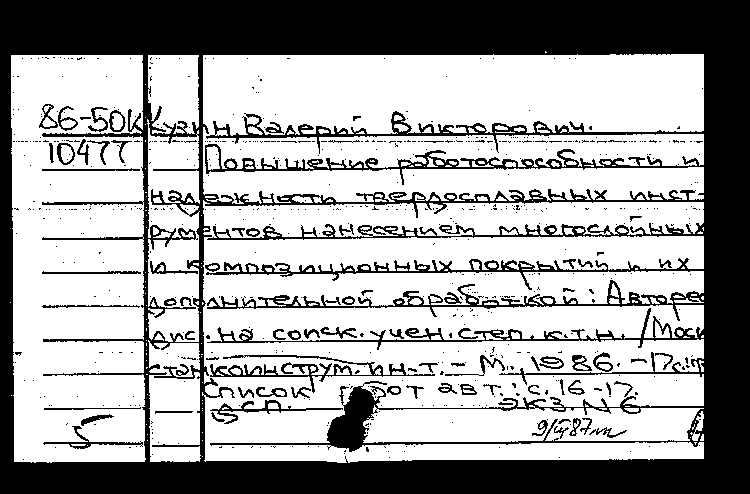 86-50К Кузин, Валерий Викторович.
10477 Повышение работоспособности и
надежности твердосплавных инст-
рументов нанесением многослойных
и композиционных покрытий и их
дополнительной обработкой: Авторе
дис. на соиск. учен. степ. к.т.н. / Моск
станкоинструм. ин-т. - М., 1986. - 17с.:
Список работ авт.: с. 16-17
ДСП. экз. N 6
5